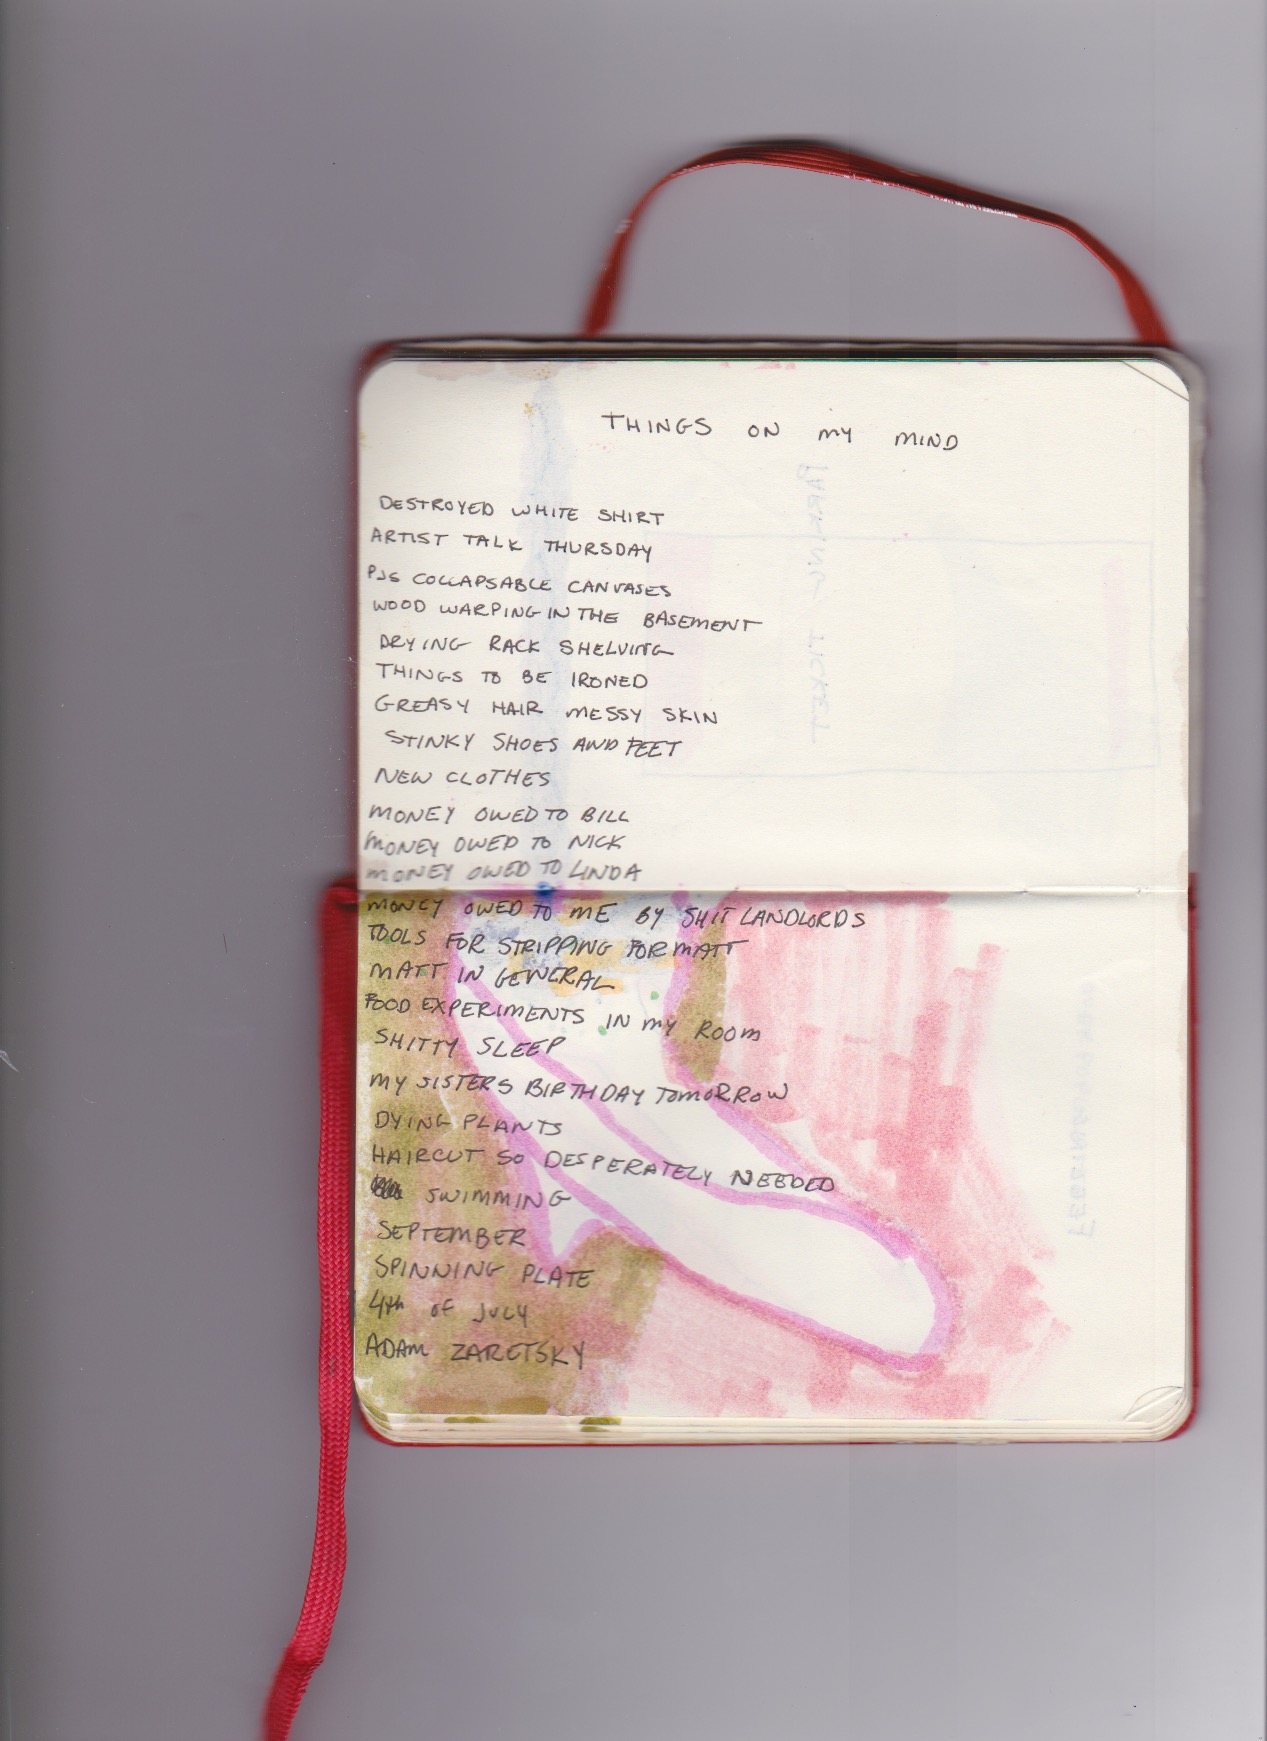 THINGS ON MY MIND
DESTROYED WHITE SHIRT
ARTIST TALK THURSDAY
PJS COLLAPSABLE CANVASES
WOOD WARPING IN THE BASEMENT
DRYING RACK SHELVING
THINGS TO BE IRONED
GREASY HAIR MESSY SKIN
STINKY SHOES AND FEET
NEW CLOTHES
MONEY OWED TO BILL
MONEY OWED TO NICK
MONEY OWED TO LINDA
MONEY OWED TO ME BY SHIT LANDLORDS
TOOLS FOR STRIPPING FOR MATT
MATT IN GENERAL
FOOD EXPERIMENTS IN MY ROOM
SHITTY SLEEP
MY SISTERS BIRTHDAY TOMORROW
DYING PLANTS
HAIRCUT SO DESPERATELY NEEDED
SWIMMING
SEPTEMBER
SPINNING PLATE
4th OF JULY
ADAM ZARETSKY
PARKING TICKET